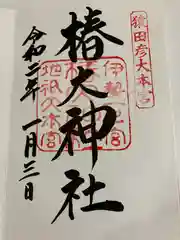 猿田彦大本宮
椿大神社
伊勢一之宮
地祇大本宮
令和二年一月三日